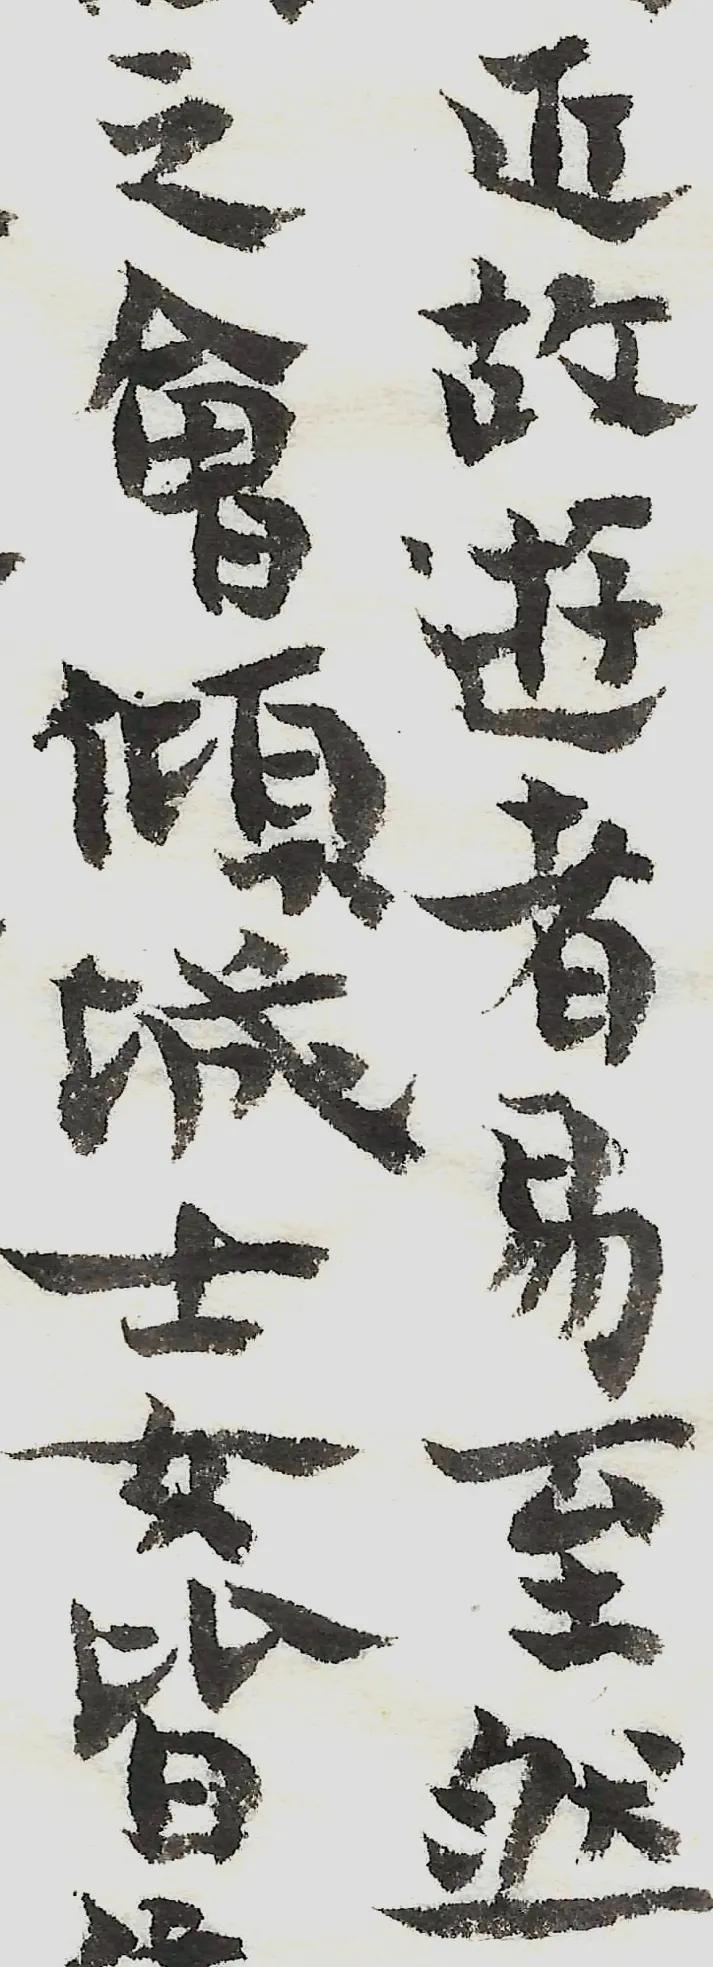 近故遊者易至然
之會傾城士女皆